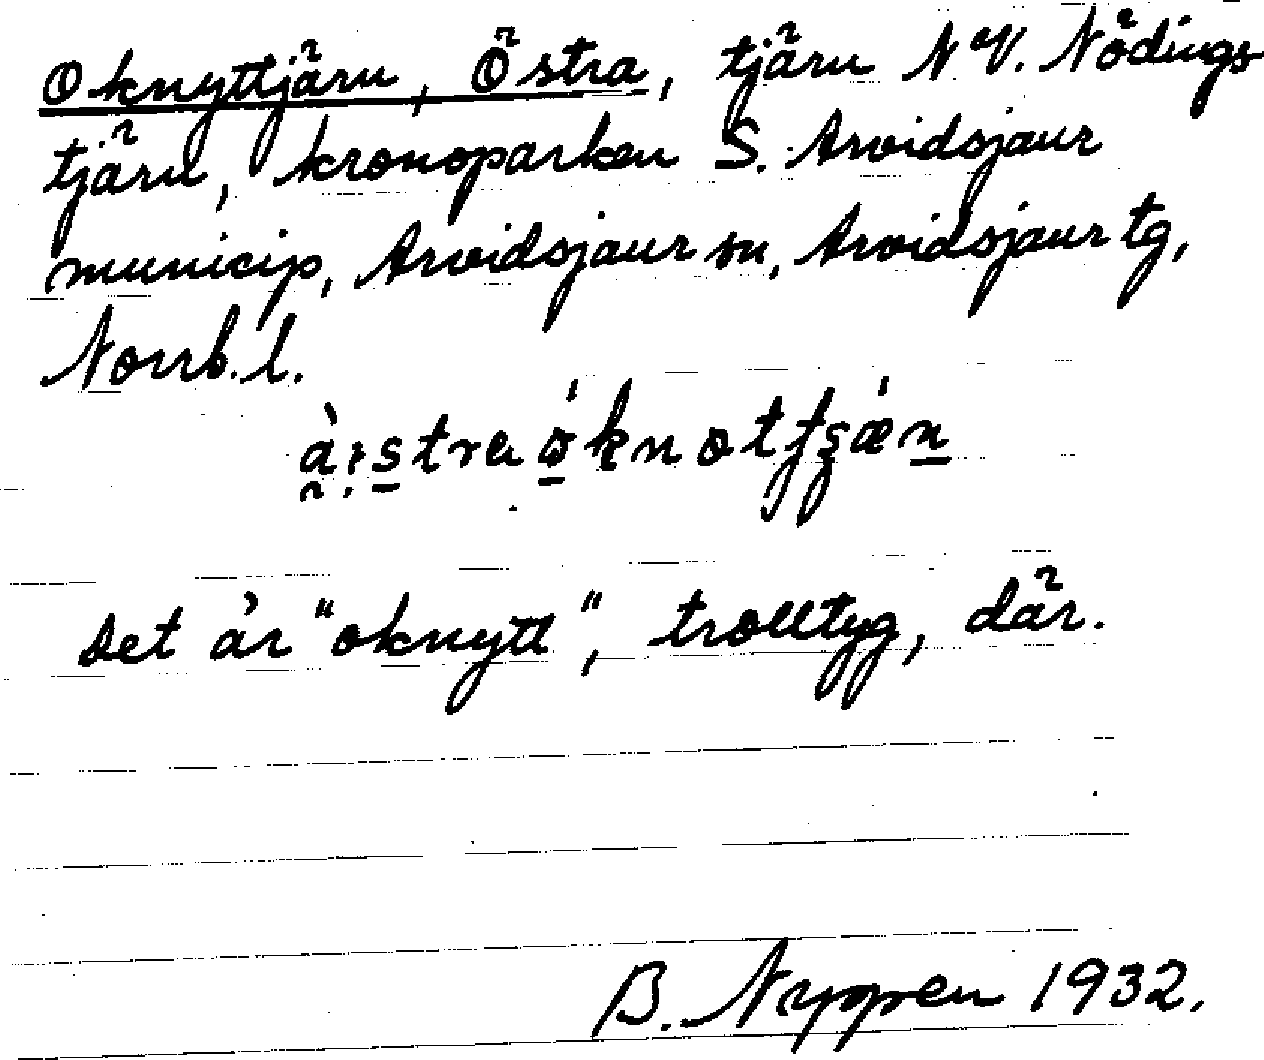 Oknyttjärn, Östra, tjärn N V. Nödings
tjärn, kronoparken S. Arvidsjaur
municip, Arvidsjaur sn, Arvidsjaur tg,
Norrb. l.
Det är "oknytt", trolltyg, där.
B. Nyppen 1932.